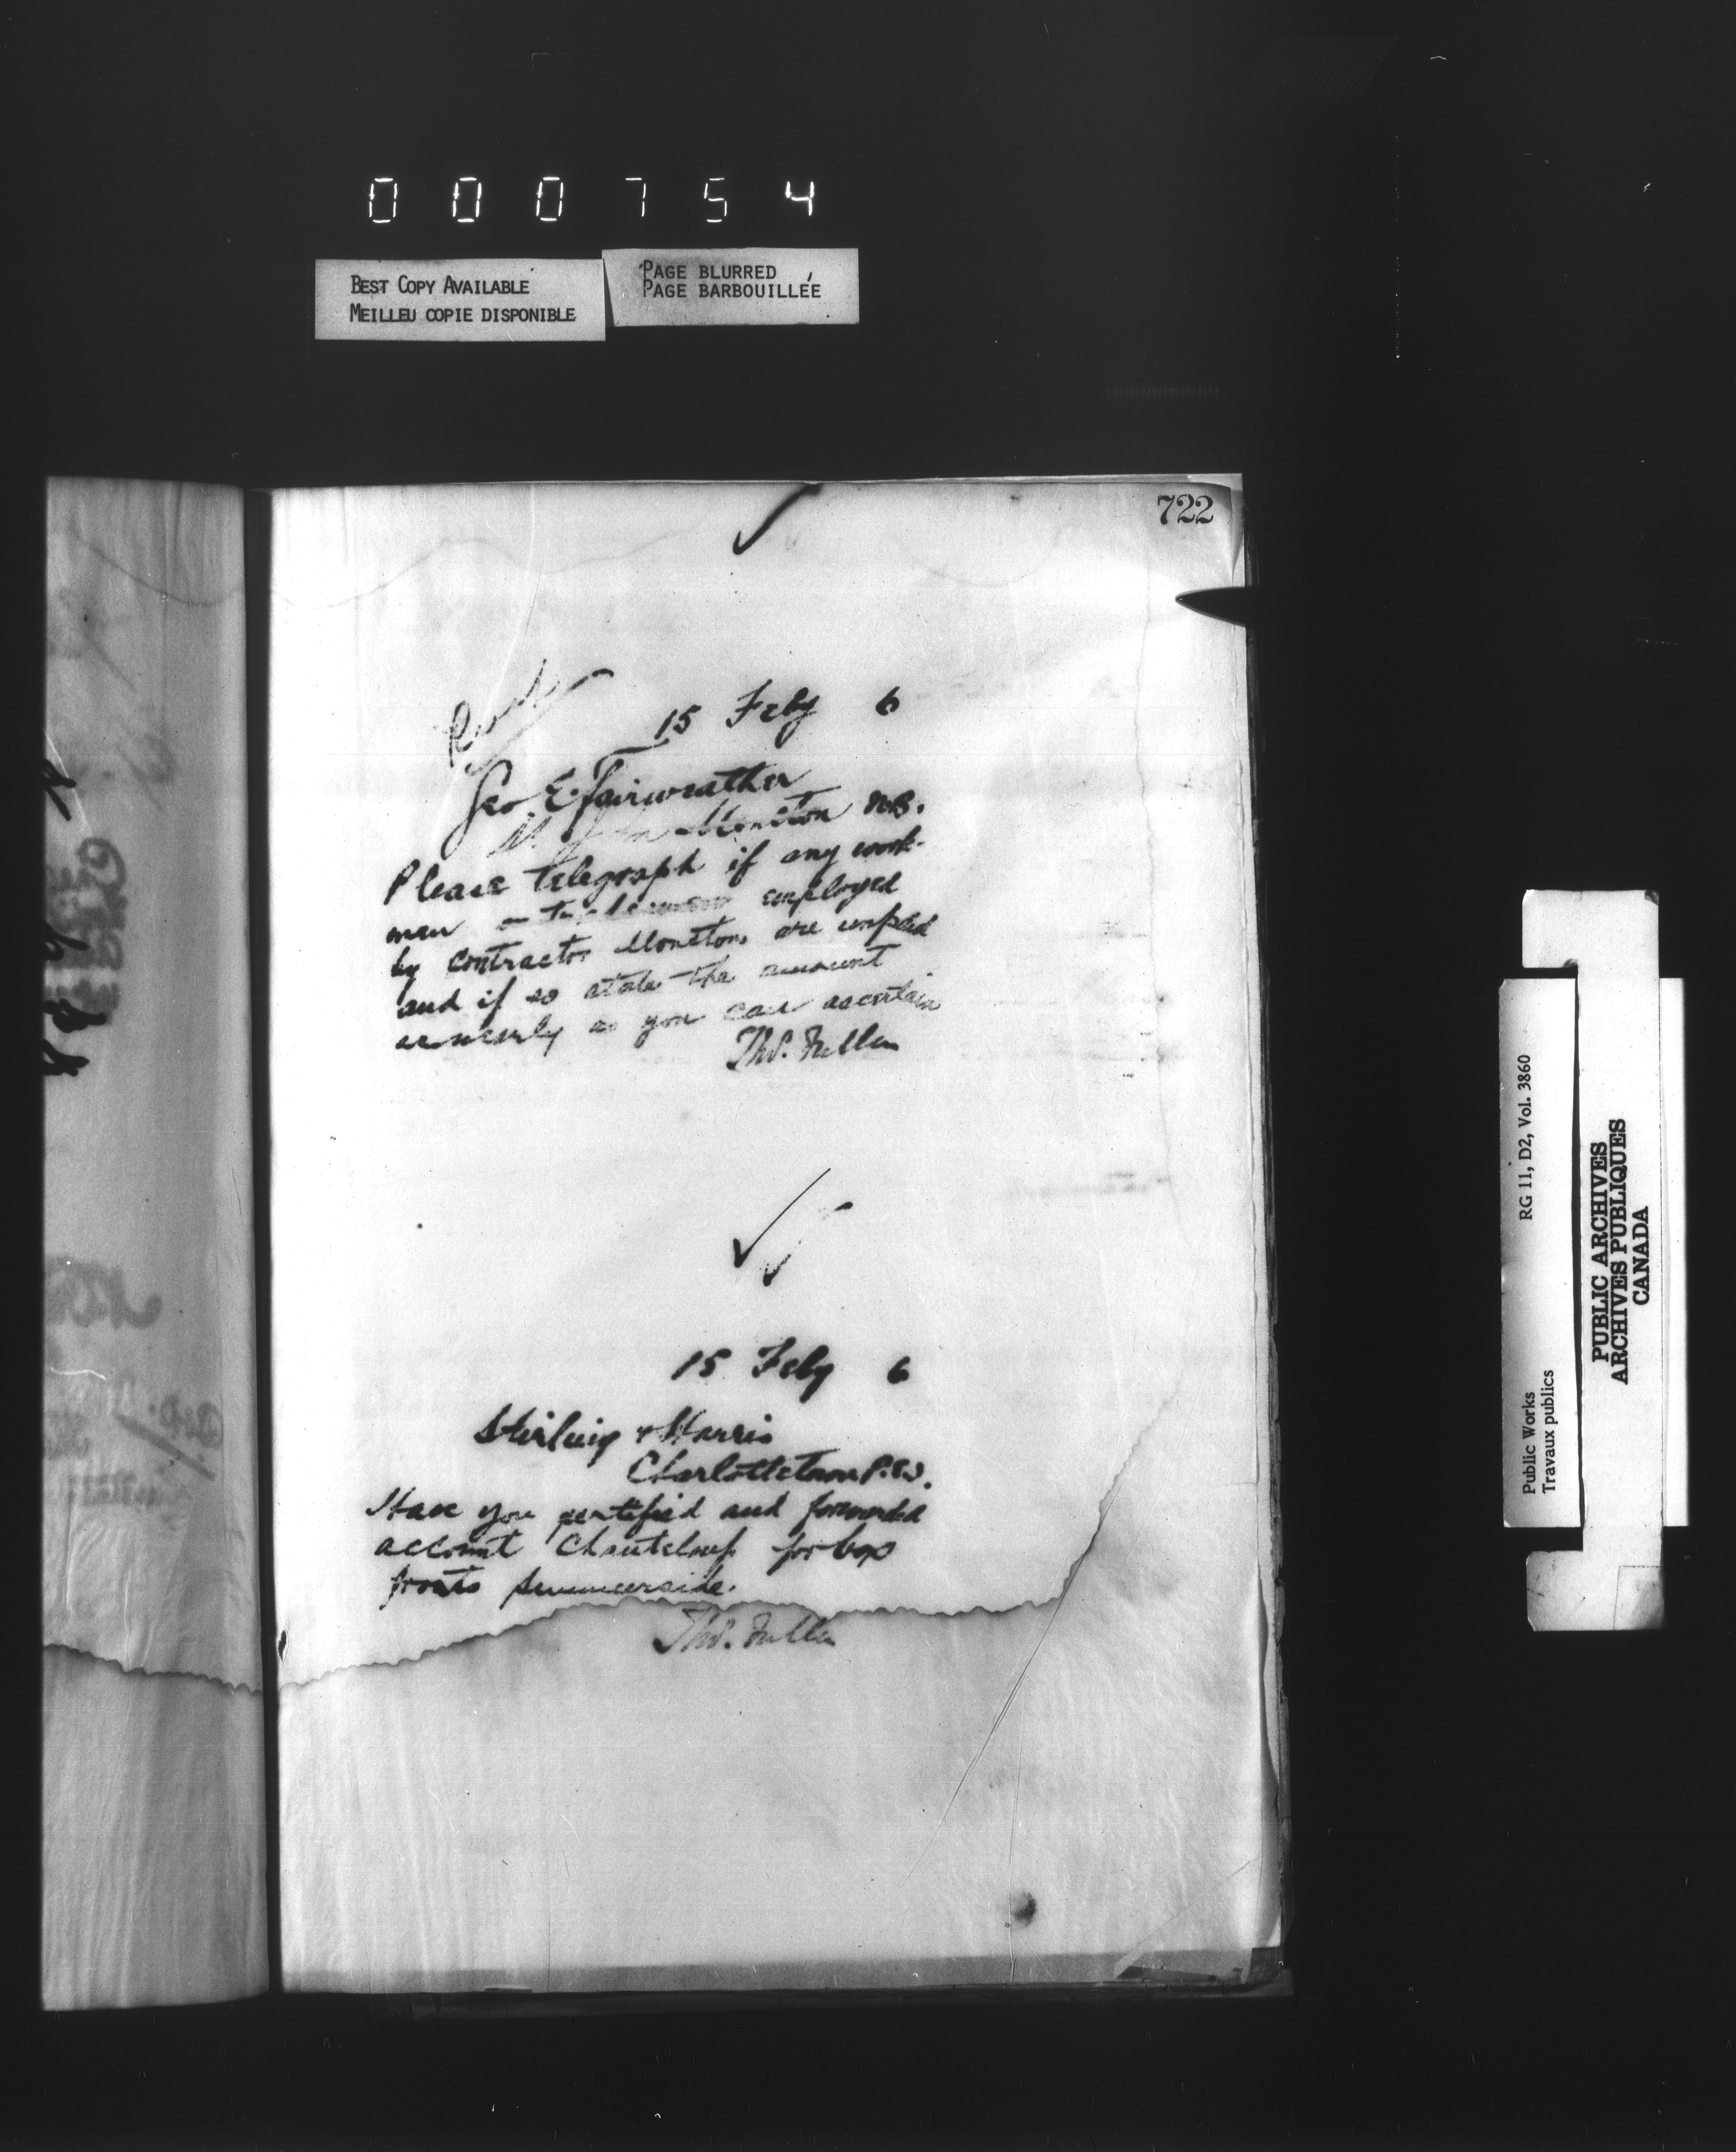 000754
BEST COPY AVAILABLE
MEILLEU COPIE DISPONIBLE
PAGE BLURRED
PAGE BARBOUILLÉE
722
15 Feby 6
Geo E. Fairweather
Moncton N.B.
Please telegraph if any work-
men employed
by contractor Moncton are unpaid
and if so state the amount
as nearly as you can ascertain
Thos. Fuller
15 Feby 6
Stirling & Harris
Charlottetown P.E.I.
Have you certified and forwarded
account Chanteloup for box
fronts Summerside.
Thos. Fuller
Public Works
Travaux publics
RG 11, D2, Vol. 3860
PUBLIC ARCHIVES
ARCHIVES PUBLIQUES
CANADA